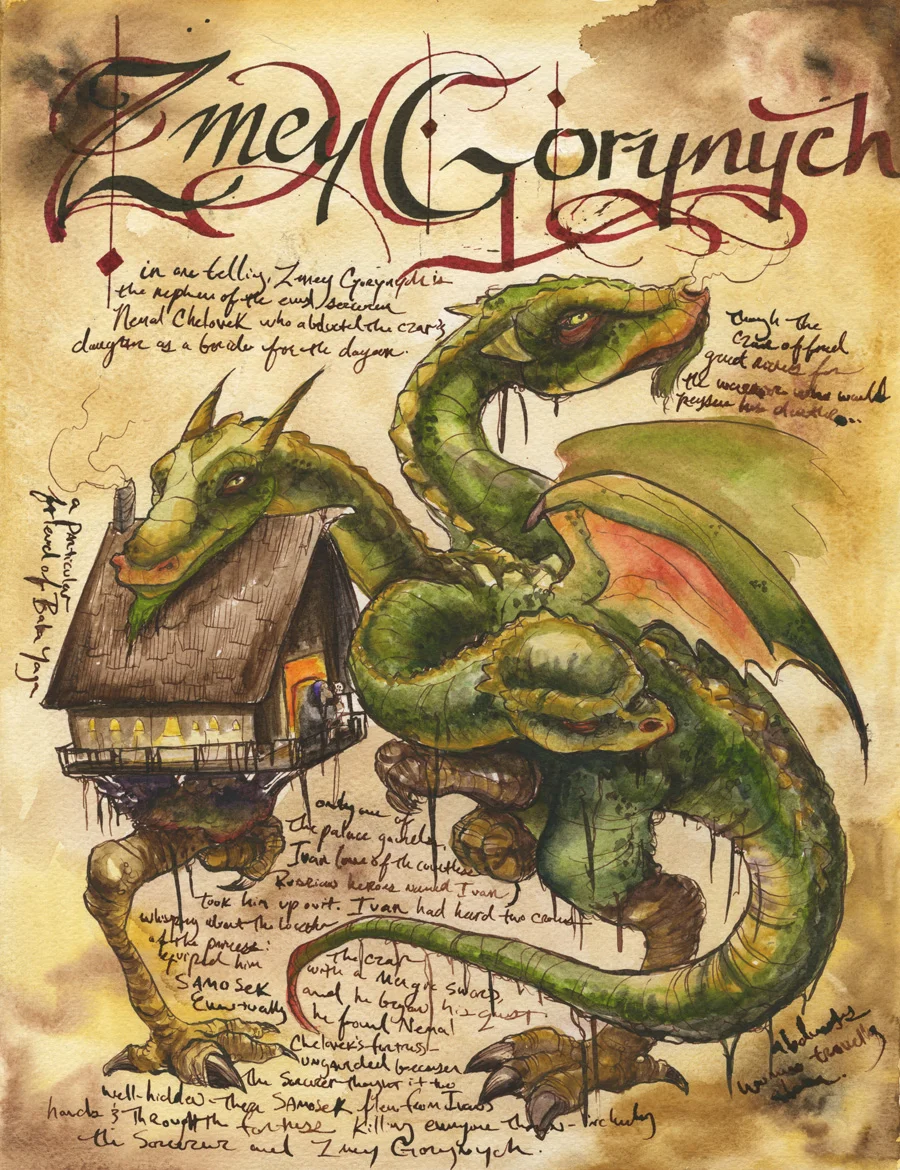 Zmey Gorynych
in one telling, Zmey Gorynych is
the nephew of the evil sorcerer
Nemal Chelovek who abducted the czar's
daughter as a bride for the dragon.
Though the
Czar offered
great riches for
the warrior who would
his daughter...
a particular
friend of Baba Yaga
only one of
the palace guards,
Ivan (one of the countless
Russian heroes named Ivan)
took him up on it. Ivan had heard two crows
whispering about the location
of the princess:
The czar
equipped him
with a magic sword,
SAMOSEK
and he began his quest.
Eventually
he found Nemal
Chelovek's fortress
unguarded because
the Sorcerer thought it too
well-hidden. Then SAMOSEK flew from Ivan's
hands & through the fortress killing everyone there - including
the Sorcerer and Zmey Gorynych.
abducts
women travelling
alone.